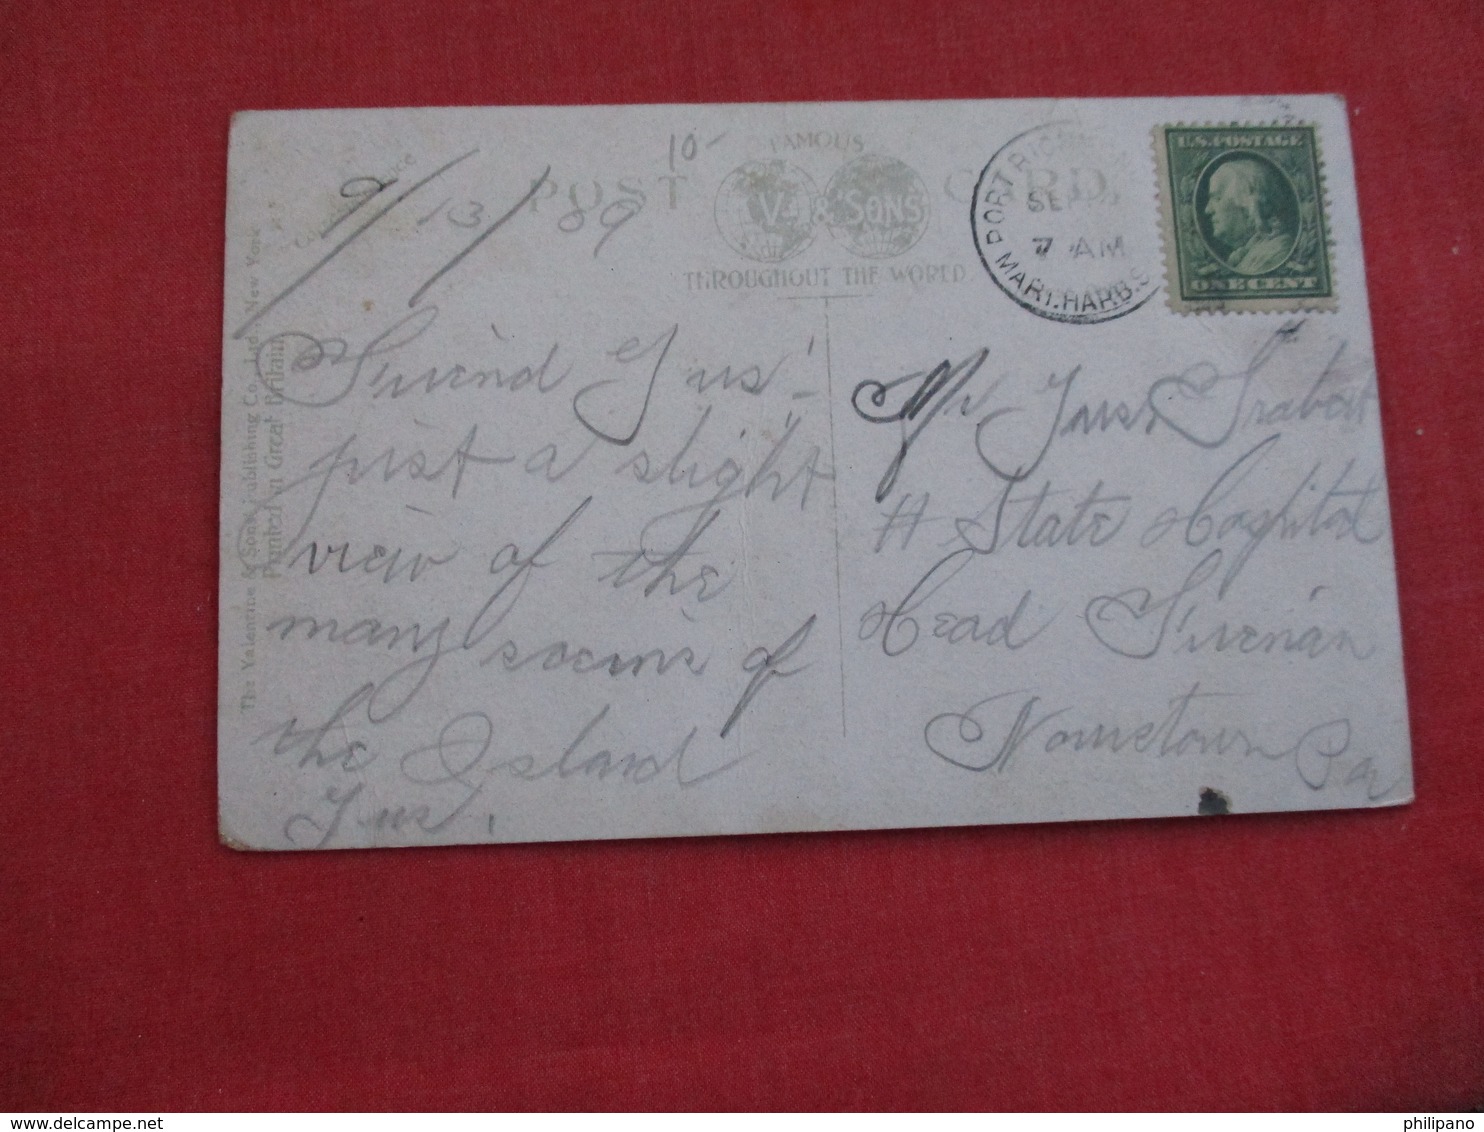 10-
FAMOUS
POST CARD.
V. & SONS
THROUGHOUT THE WORLD
9/13/09
PORT RICHMOND
SE
7 AM
MAR. HARB. S
U.S. POSTAGE
ONE CENT
The Valentine & Sons Publishing Co., Ltd., New York
Printed in Great Britain
Friend Gus'-
just a slight
view of the
many sceens of
the Island
Gus.
Mr Gus
State Hospital
Head Fireman
Norristown Pa
philipano